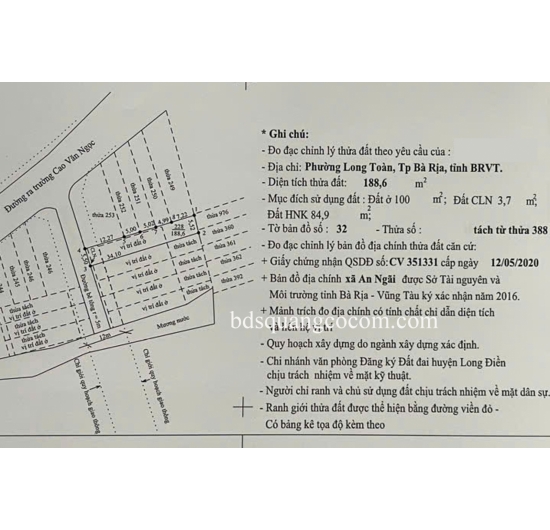 * Ghi chú:
- Đo đạc chỉnh lý thửa đất theo yêu cầu của :
- Địa chỉ: Phường Long Toàn, Tp Bà Rịa, tỉnh BRVT.
- Diện tích thửa đất: 188,6 m²
- Mục đích sử dụng đất : Đất ở 100 m²; Đất CLN 3,7 m²;
Đất HNK 84,9 m²;
- Tờ bản đồ số : 32 - Thửa số : tách từ thửa 388
- Đo đạc chỉnh lý bản đồ địa chính thửa đất căn cứ:
+ Giấy chứng nhận QSDĐ số: CV 351331 cấp ngày 12/05/2020
+ Bản đồ địa chính xã An Ngãi được Sở Tài nguyên và
Môi trường tỉnh Bà Rịa - Vũng Tàu ký xác nhận năm 2016.
+ Mảnh trích đo địa chính có tính chất chỉ dẫn diện tích
bdsquangcocom.com
- Quy hoạch xây dựng do ngành xây dựng xác định.
- Chi nhánh văn phòng Đăng ký Đất đai huyện Long Điền
chịu trách nhiệm về mặt kỹ thuật.
- Người chỉ ranh và chủ sử dụng đất chịu trách nhiệm về mặt dân sự.
- Ranh giới thửa đất được thể hiện bằng đường viền đỏ -
Có bảng kê tọa độ kèm theo
Đường ra trường Cao Văn Ngọc
thửa 253
thửa 252
thửa 251
thửa 250
thửa 249
12,27
5,00
5,03
4,99
7,22
5,32
228
188,6
34,10
thửa 976
thửa 360
thửa 361
thửa 362
thửa 392
vị trí đất ở
vị trí đất ở
vị trí đất ở
vị trí đất ở
thửa tách
thửa tách
thửa tách
thửa tách
Mương nước
12m
Chỉ giới quy hoạch giao thông
Chỉ giới quy hoạch giao thông